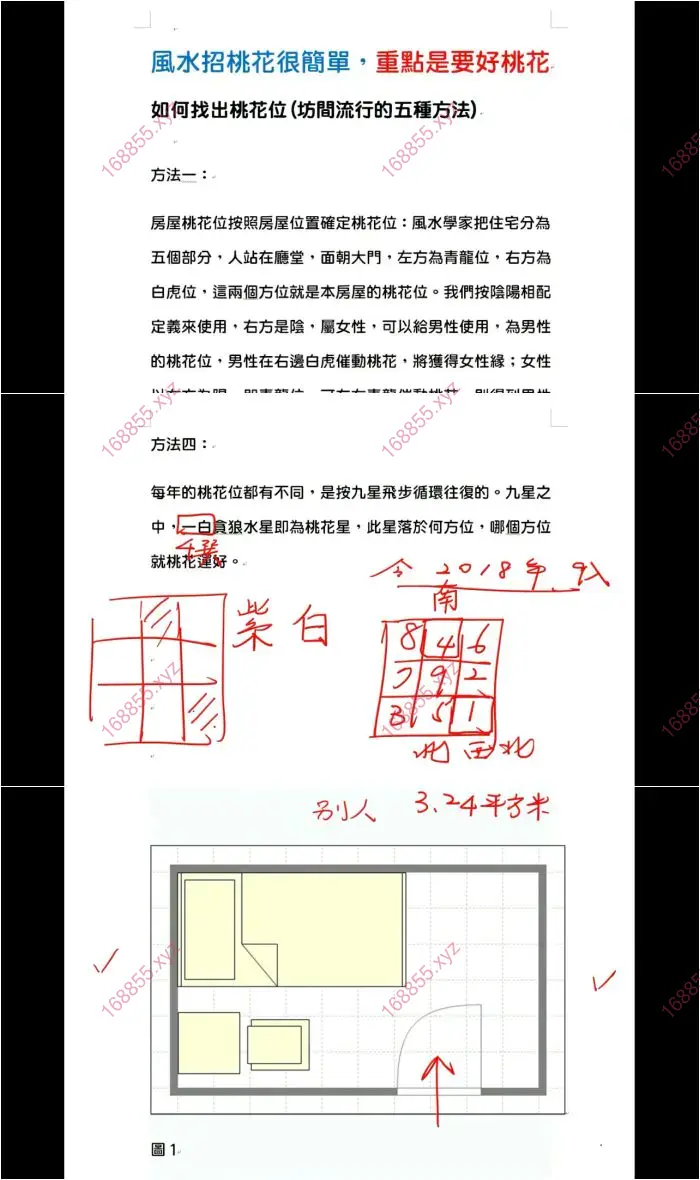 風水招桃花很簡單，重點是要好桃花
如何找出桃花位(坊間流行的五種方法)
168855.xyz
168855.xyz
168855.xyz
方法一：
房屋桃花位按照房屋位置確定桃花位：風水學家把住宅分為
五個部分，人站在廳堂，面朝大門，左方為青龍位，右方為
白虎位，這兩個方位就是本房屋的桃花位。我們按陰陽相配
定義來使用，右方是陰，屬女性，可以給男性使用，為男性
的桃花位，男性在右邊白虎催動桃花，將獲得女性緣；女性
168855.xyz
168855.xyz
168855.xyz
方法四：
每年的桃花位都有不同，是按九星飛步循環往復的。九星之
中，一白貪狼水星即為桃花星，此星落於何方位，哪個方位
就桃花運好。
4綠
今 2018年
南
紫白
8 4 6
7 9 2
3 5 1
北 西北
168855.xyz
168855.xyz
168855.xyz
別人 3.24平方米
168855.xyz
168855.xyz
168855.xyz
圖 1